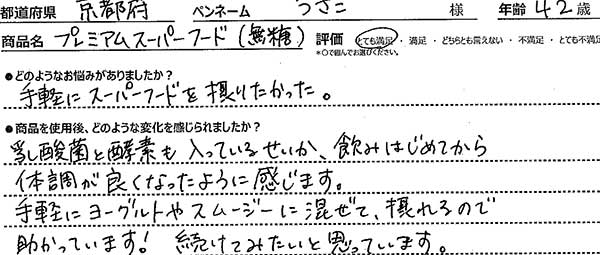 都道府県 京都府 ペンネーム うさこ 様 年齢 42 歳
商品名 プレミアムスーパーフード(無糖) 評価 とても満足・満足・どちらとも言えない・不満足・とても不満足
*○で囲んでお選びください。
●どのようなお悩みがありましたか?
手軽にスーパーフードを摂りたかった。
●商品を使用後、どのような変化を感じられましたか?
乳酸菌と酵素も入っているせいか、飲みはじめてから
体調が良くなったように感じます。
手軽にヨーグルトやスムージーに混ぜて、摂れるので
助かっています! 続けてみたいと思っています。